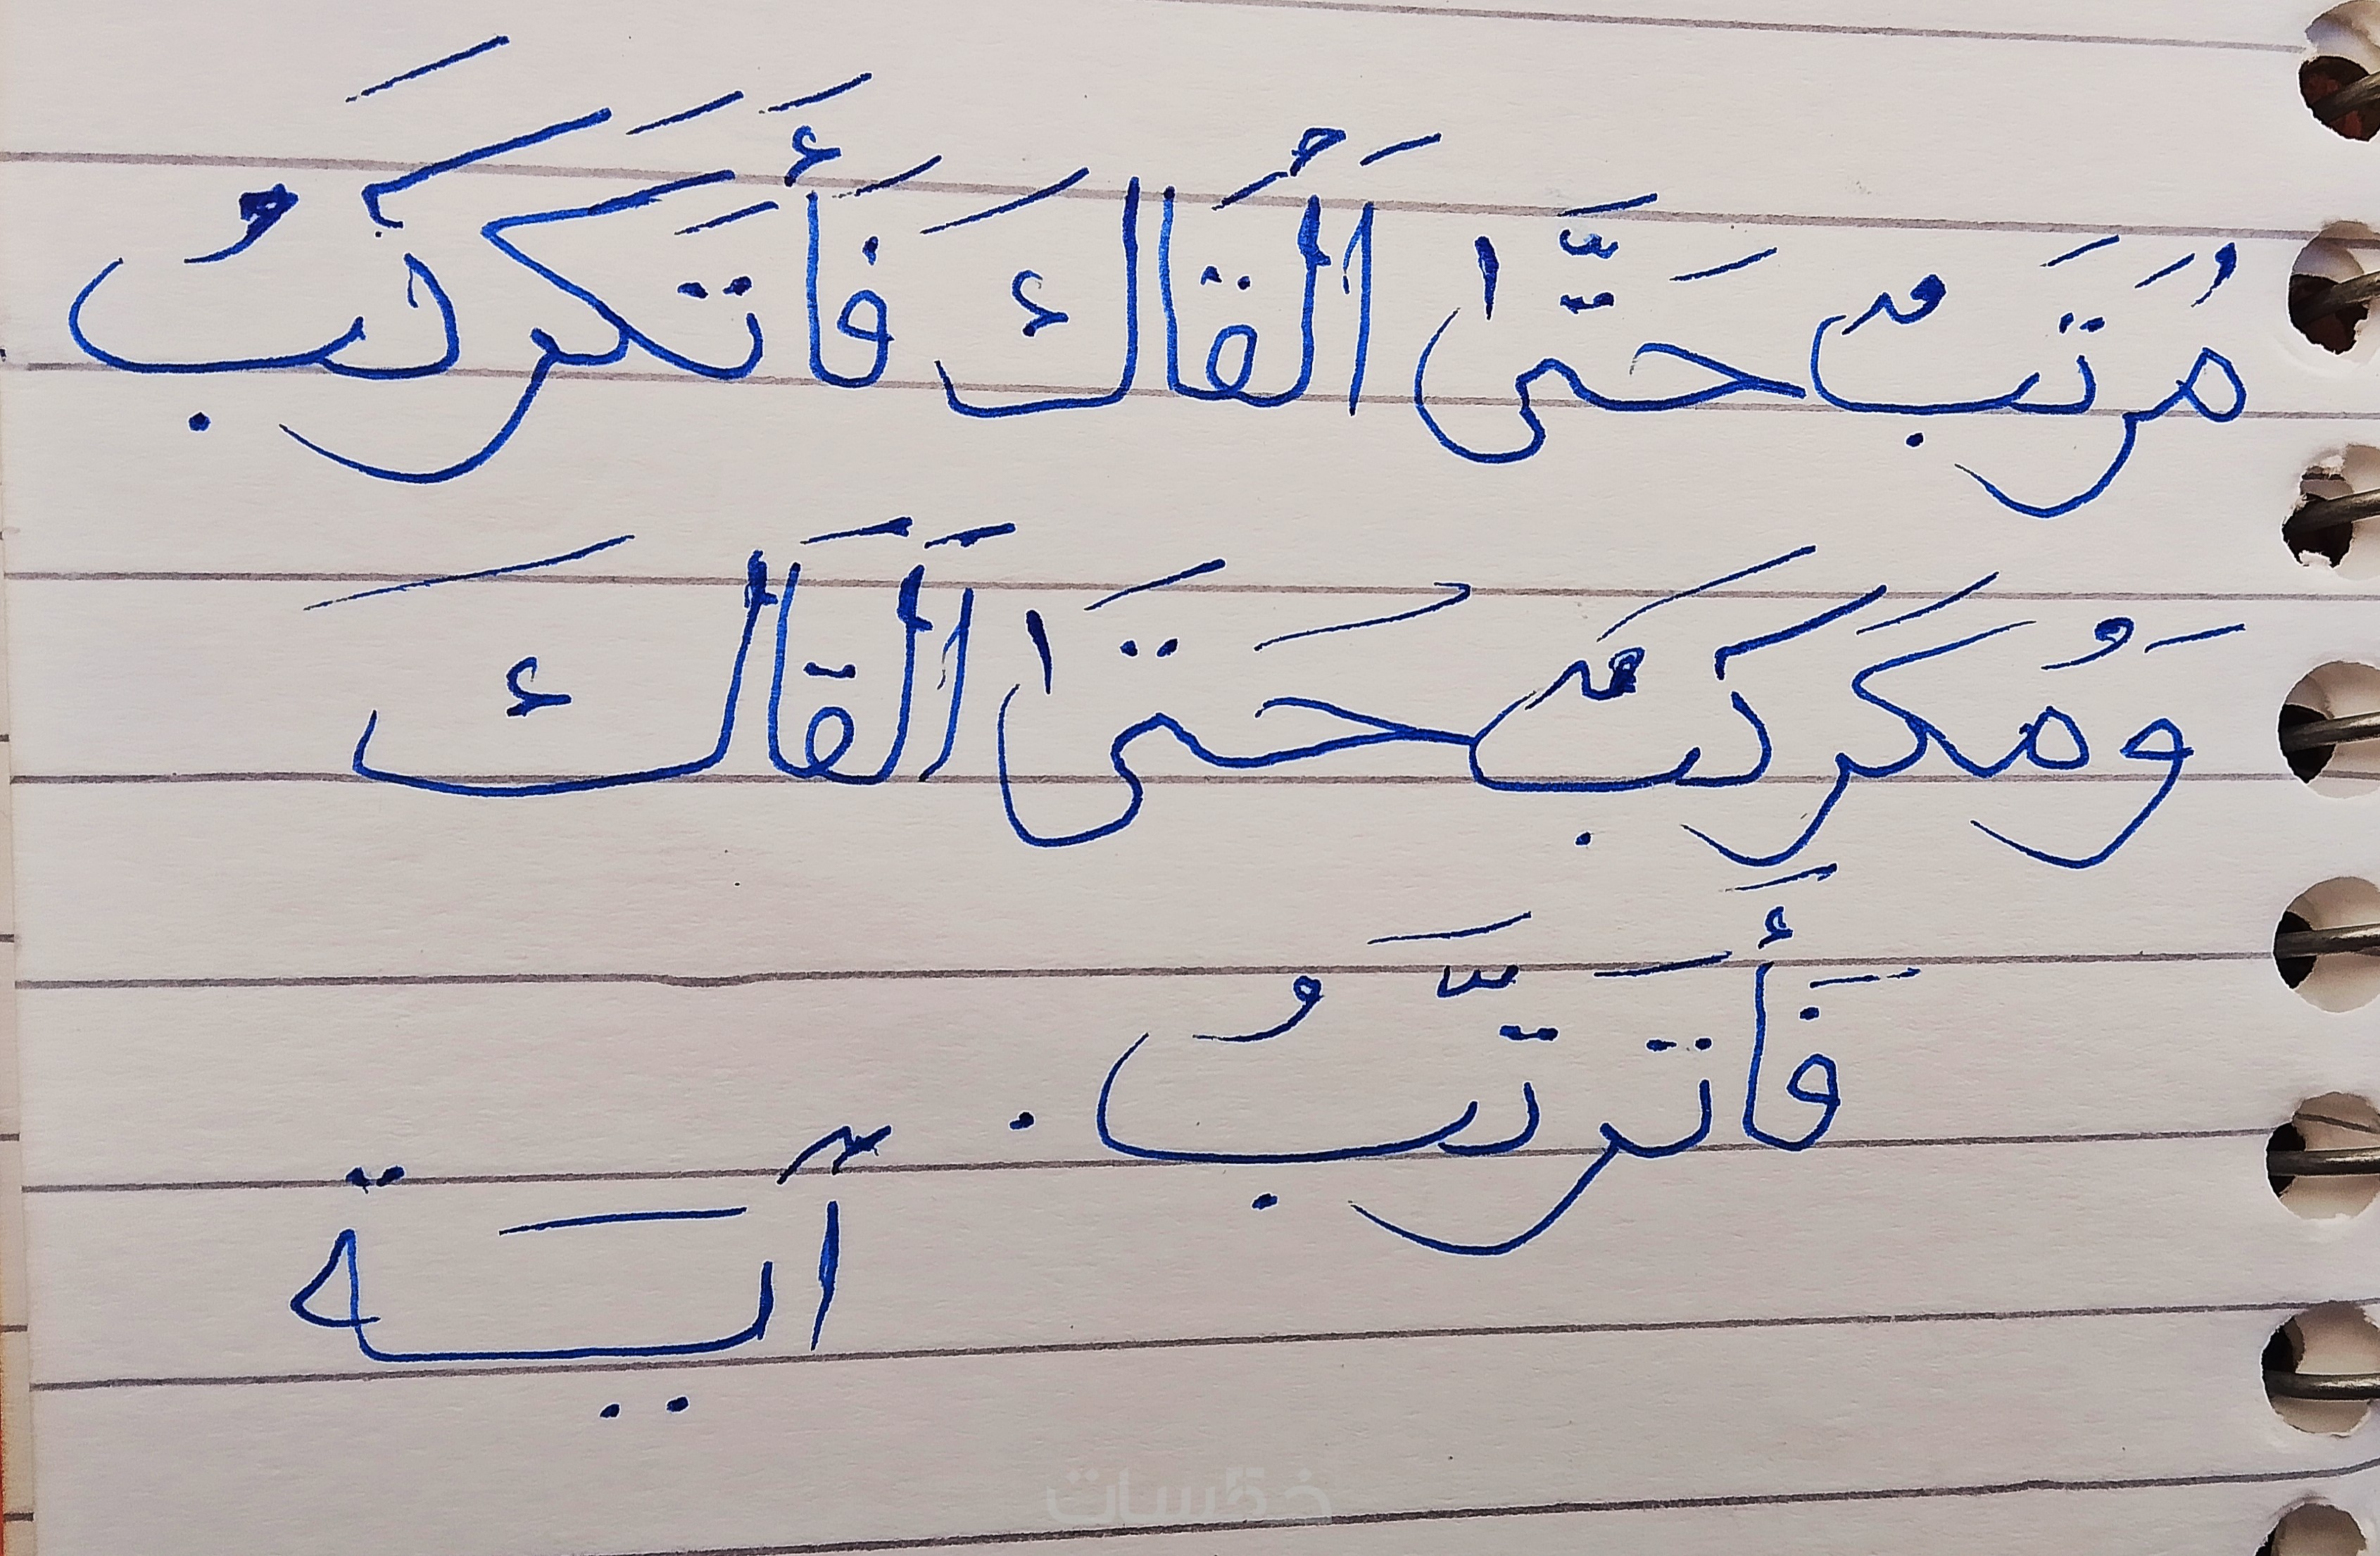 مُرَتَبٌ حَتَّى أَلْقَاكَ فَأَتَكَركَبُ
وَمُكَركَبٌ حَتَى أَلقَاكَ
فَأَتَرتَّبُ .
آيَة
خمسات